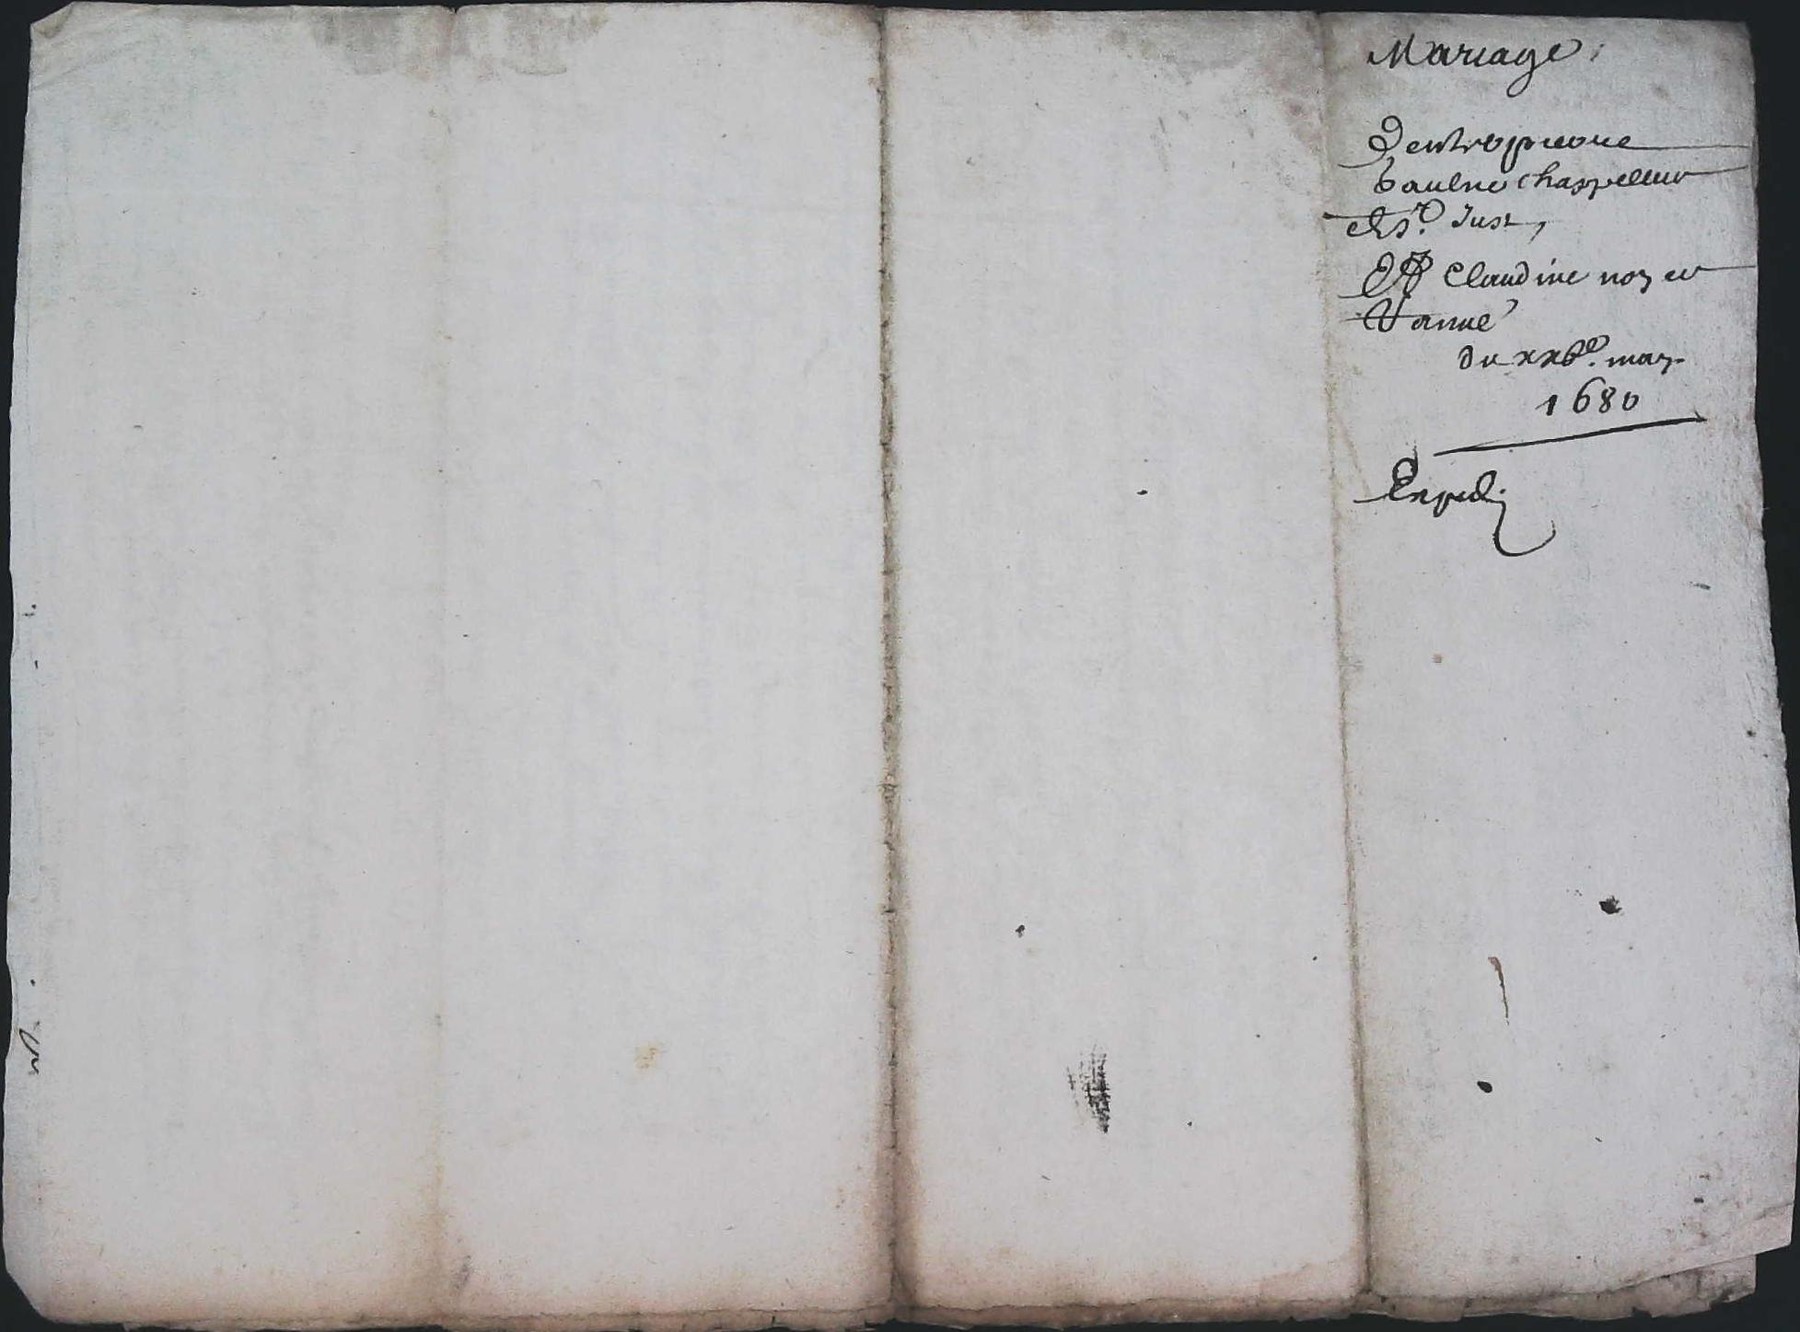 Mariage
d'entre pierre
baulne chappelleur
de St. Just,
Et Claudine noyer
du xxbe. may
1680
Expedi